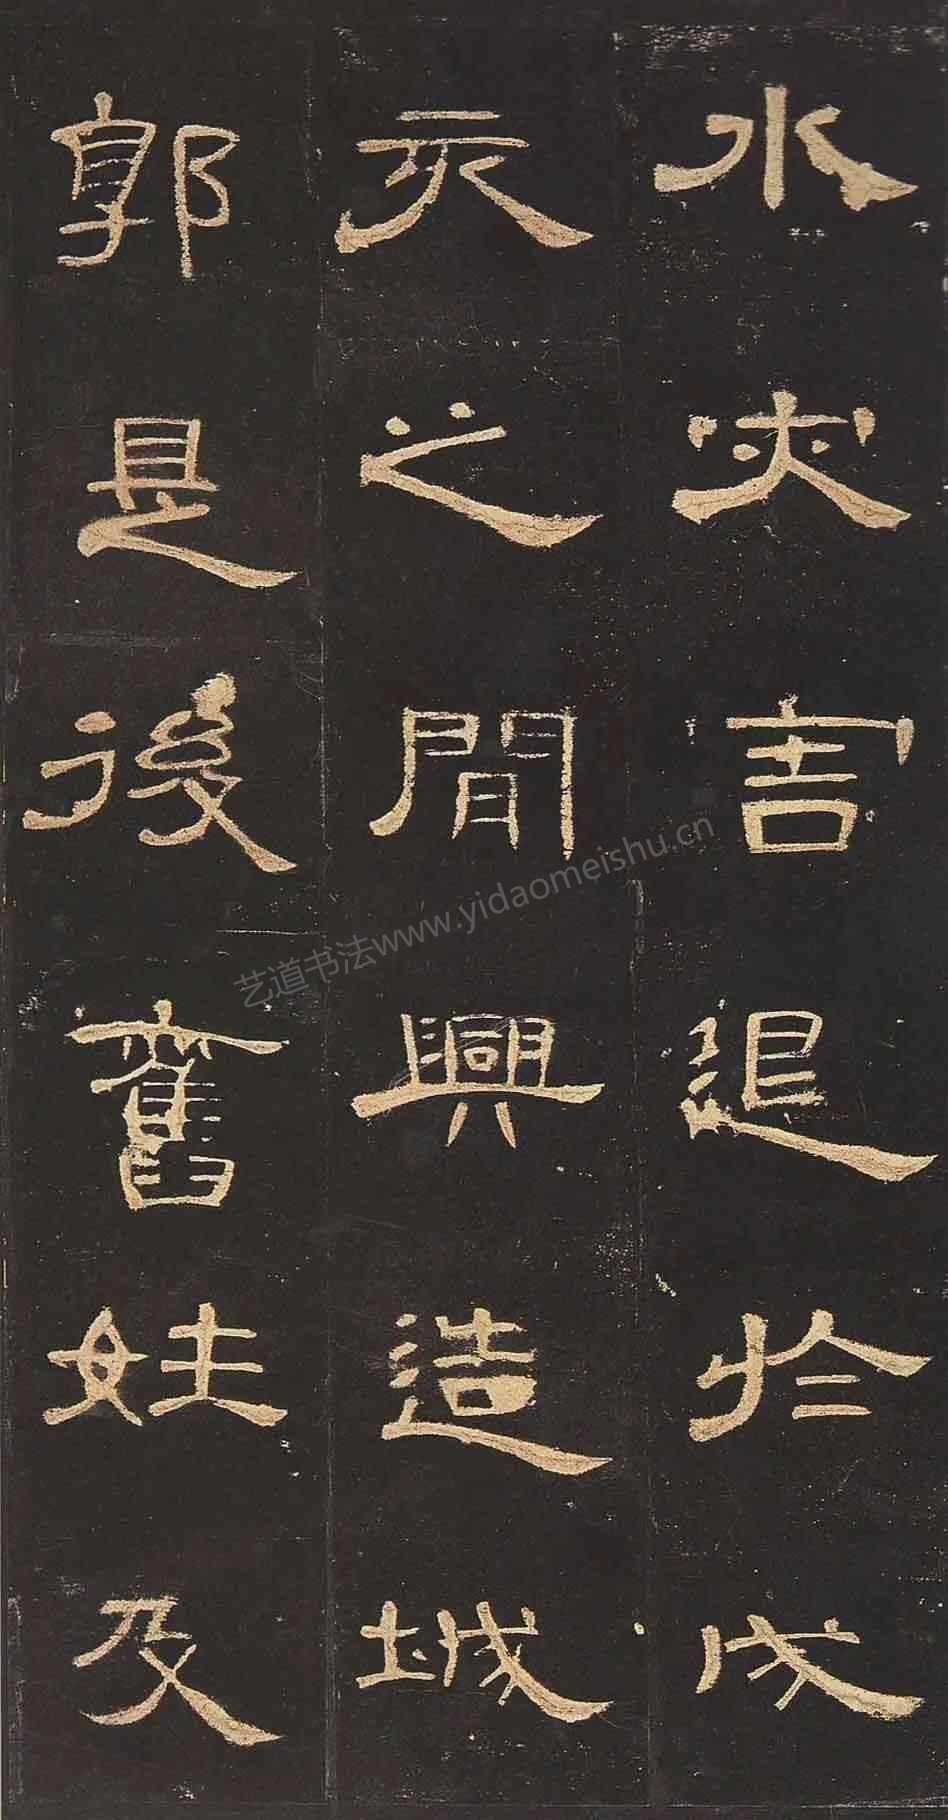 水灾害退於戌
亥之間興造城
郭是後舊姓及
艺道书法www.yidaomeishu.cn